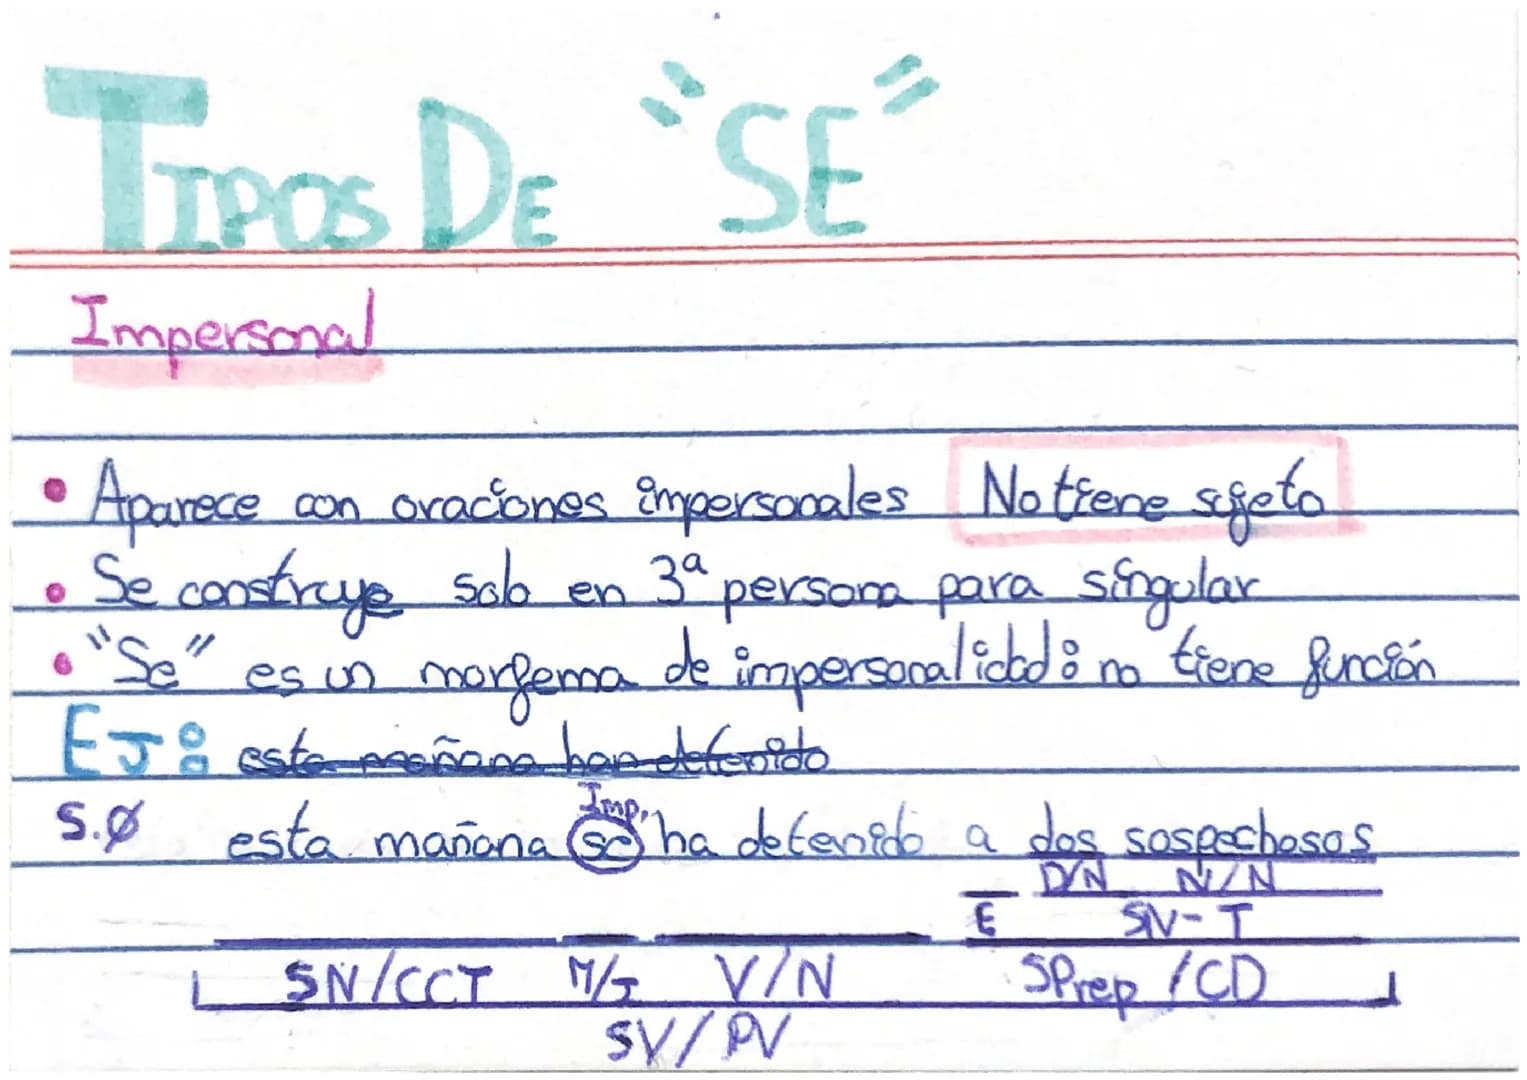 TIPOS DE "SE"
Impersonal
• Aparece con oraciones impersonales No tiene sujeto
• Se construye solo en 3ª persona para singular
• "Se" es un morfema de impersonalidad: no tiene función
EJ: esta mañana han detenido
Imp.
S.Ø esta mañana se ha detenido a dos sospechosos
D/N N/N
E SN-T
SN/CCT M/I V/N SPrep/CD
SV/PV